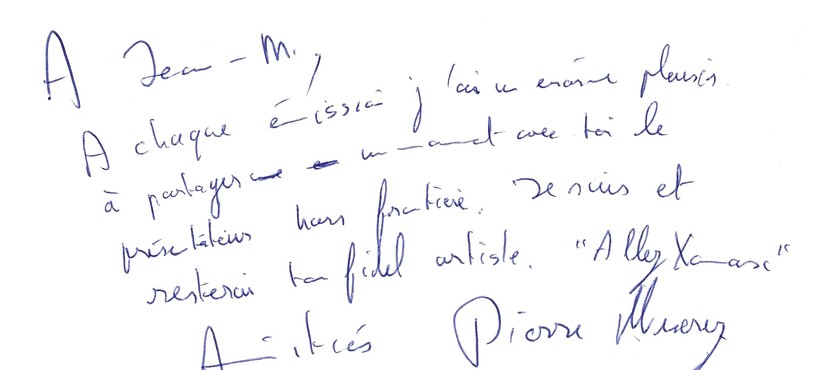 A Jean-M.,
A chaque émission j'ai un énorme plaisir
à partager un moment avec toi le
présentateur hors frontière. Je suis et
resterai ton fidel artiste. "Allez
Amitiés Pierre